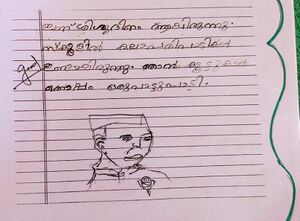 ഇന്ന് ശിശുദിനം ആയിരുന്നു.
സ്കൂളിൽ കലാപരിപാടികൾ
ഉണ്ടായിരുന്നു. ഞാൻ കൂട്ടുകാർ
ക്കൊപ്പം ഒരുപാട്ടുപാടി.
good